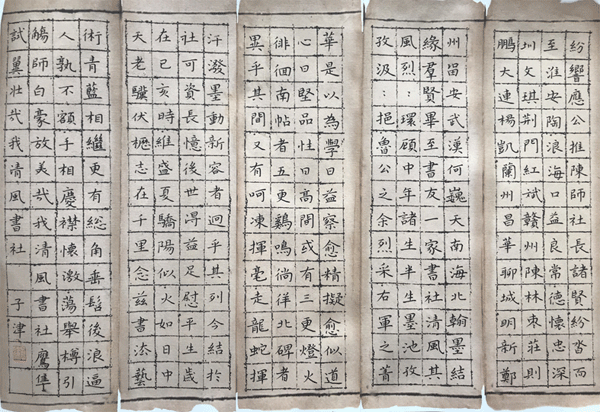 紛響應公推陳師社長諸賢紛沓而
至淮安陶浪海口益良常德懷忠深
圳文琪荊門紅斌贛州陳林棗莊則
鵬大連楊凱蘭州昌華聊城明新鄭
州留安武漢何巍天南海北翰墨結
緣羣賢畢至書友一家書社清風其
風烈::環顧中年諸生半生墨池孜
孜汲::挹魯公之余烈采右軍之菁
華是以為學日益察愈精擬愈似道
心日堅品性日高間或有三更燈火
徘徊南帖者五更鷄鳴徜徉北碑者
異乎其間又有呵凍揮毫走龍蛇揮
汗潑墨動新容者迥乎其列今結於
社可資長憶後世得益足慰平生歲
在已亥時維盛夏驕陽似火如日中
天老驥伏櫪志在千里念茲書添藝
術青藍相繼更有總角垂髫後浪逼
人孰不額手相慶襟懷激蕩舉樽引
觴師白豪放美哉我清風書社鷹隼
試翼壯哉我清風書社
子津